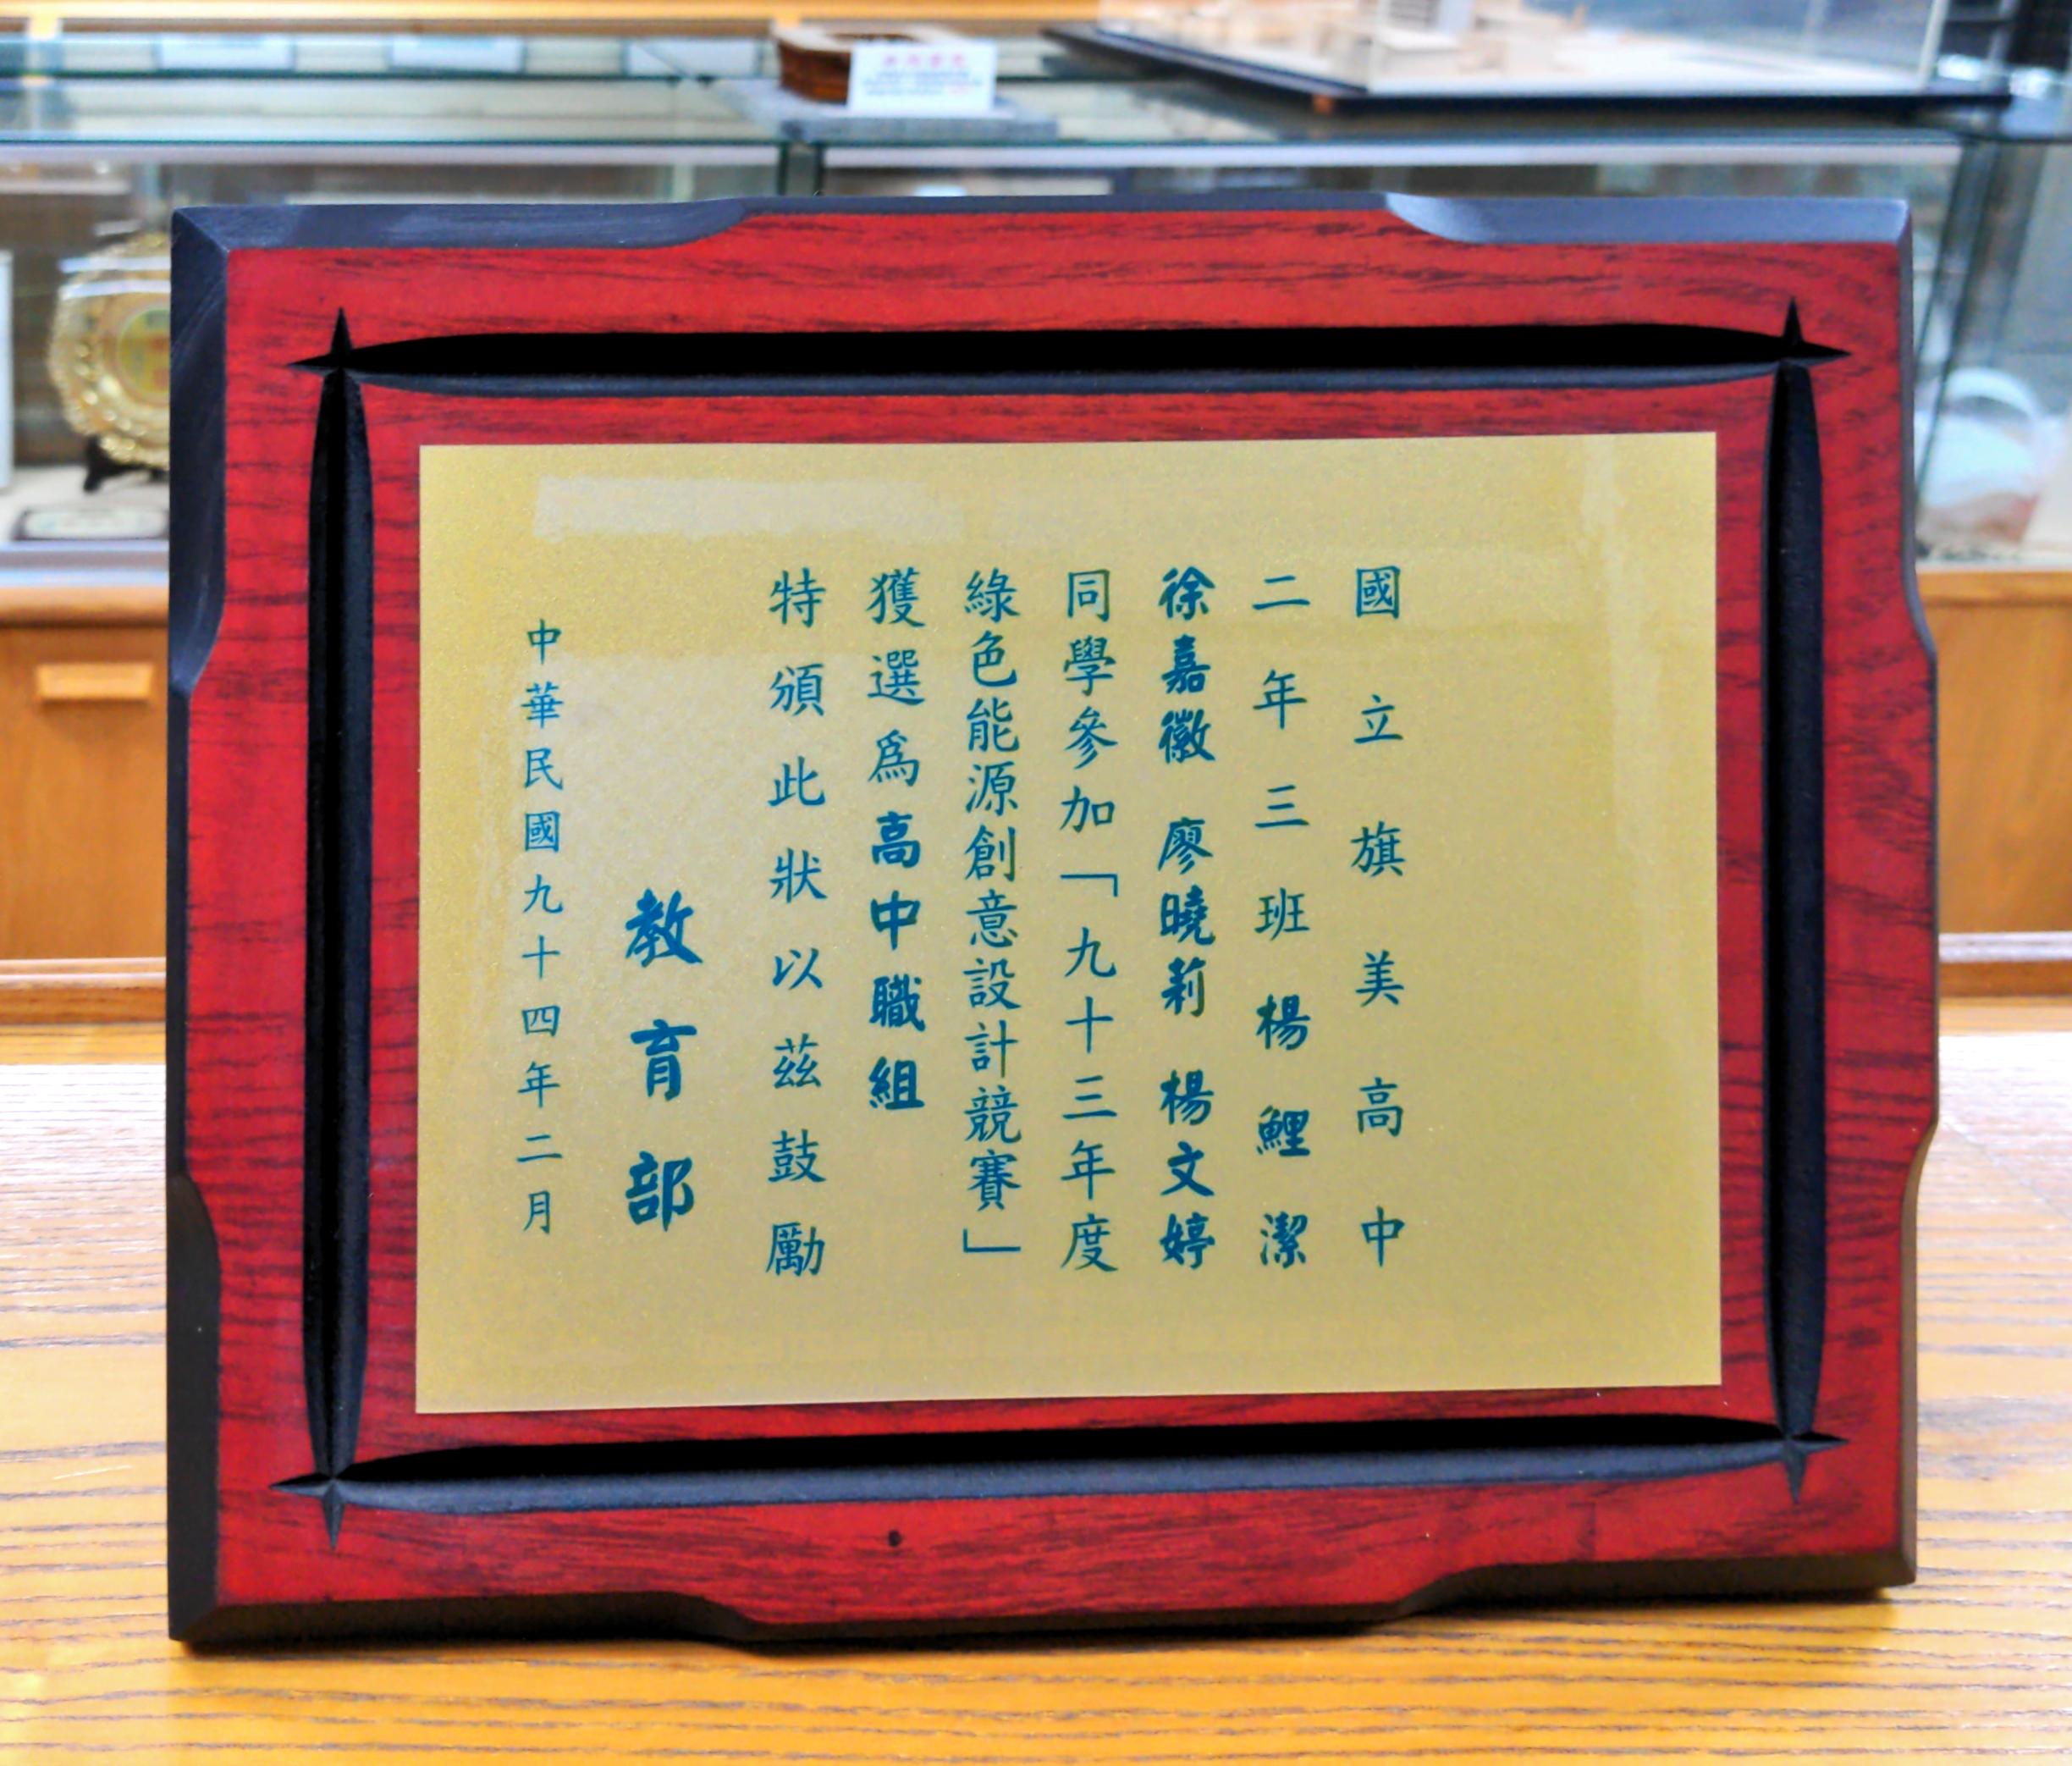 國立旗美高中
二年三班楊鯉潔
徐嘉徽 廖曉莉 楊文婷
同學參加「九十三年度
綠色能源創意設計競賽」
獲選為高中職組
特頒此狀以茲鼓勵
教育部
中華民國九十四年二月